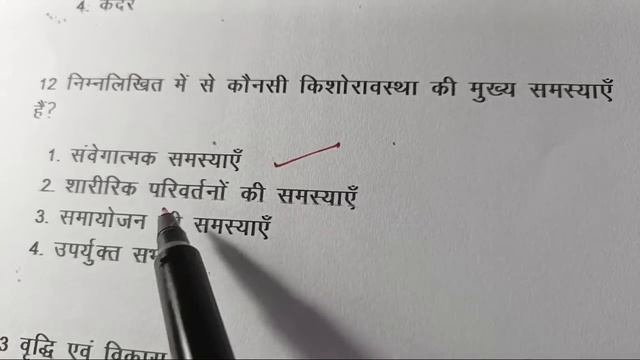 4. कंदर
12 निम्नलिखित में से कौनसी किशोरावस्था की मुख्य समस्याएँ
हैं?
1. संवेगात्मक समस्याएँ
2. शारीरिक परिवर्तनों की समस्याएँ
3. समायोजन समस्याएँ
4. उपर्युक्त
3 वृद्धि एवं विकास